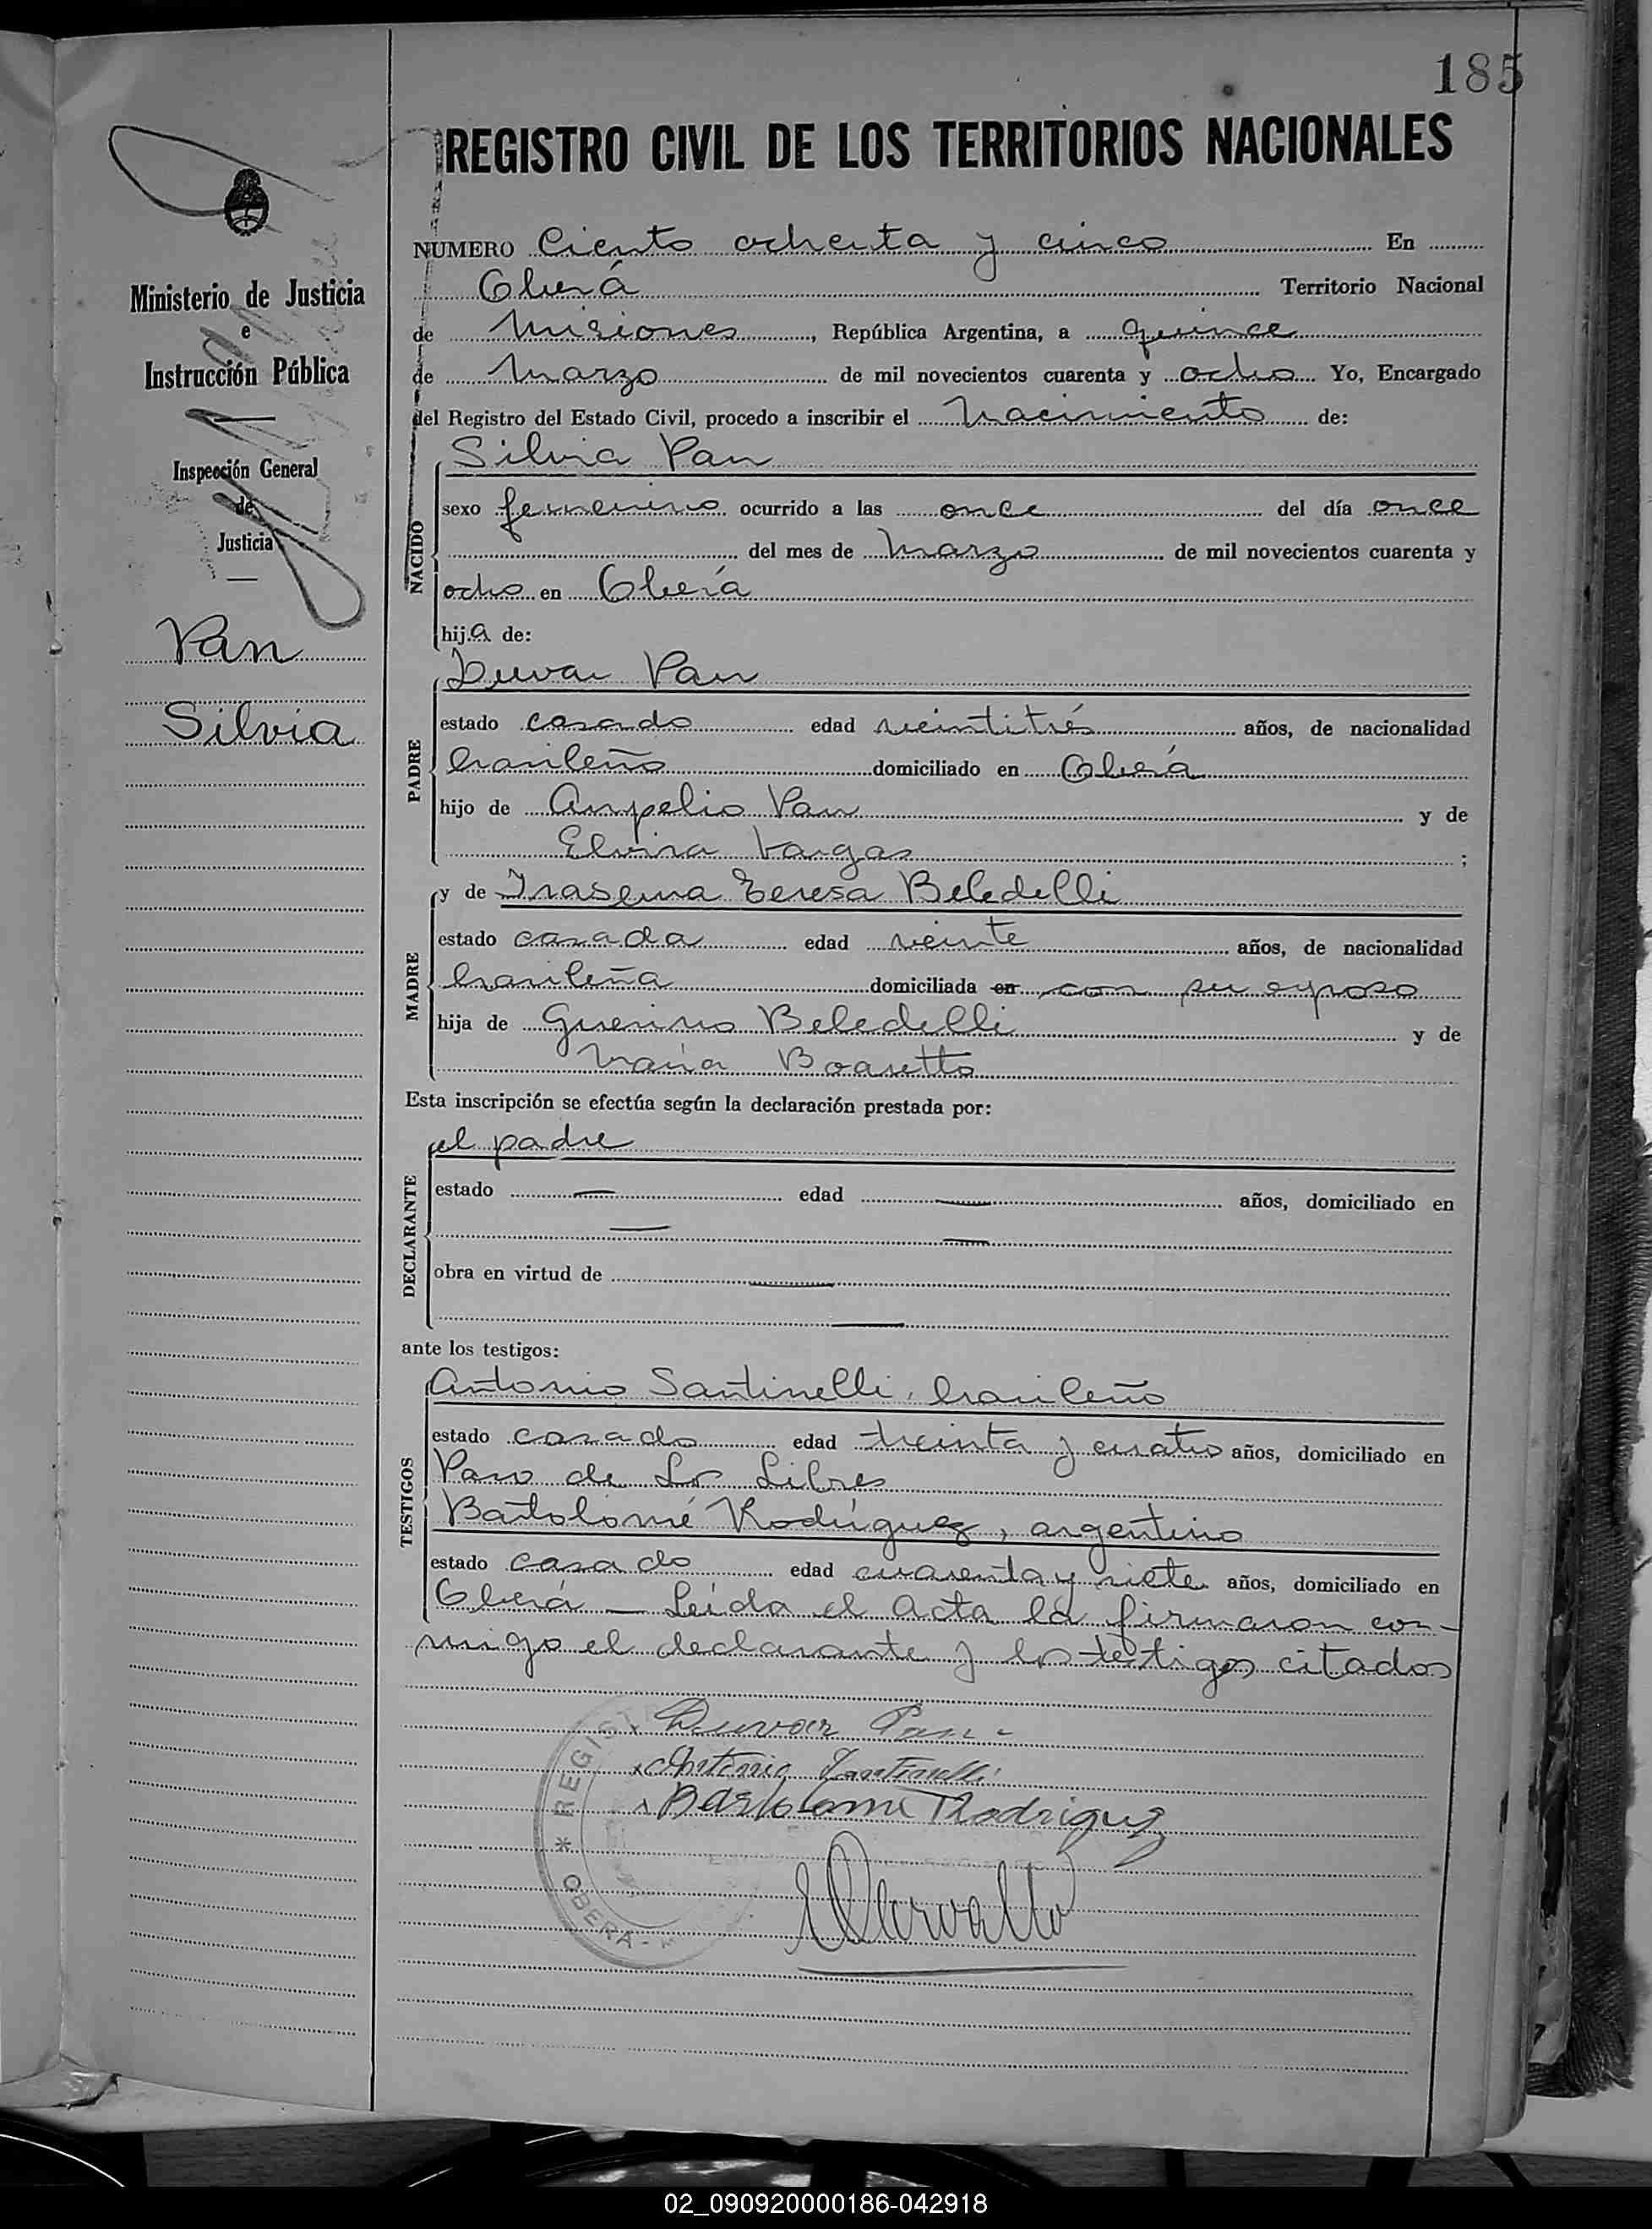 185
REGISTRO CIVIL DE LOS TERRITORIOS NACIONALES
Ministerio de Justicia
e
Instrucción Pública
Inspección General
de
Justicia
Pan
Silvia
NUMERO Ciento ochenta y cinco En
Oberá Territorio Nacional
de Misiones, República Argentina, a quince
de Marzo de mil novecientos cuarenta y ocho Yo, Encargado
del Registro del Estado Civil, procedo a inscribir el Nacimiento de:
NACIDO
Silvia Pan
sexo femenino ocurrido a las once del día once
del mes de Marzo de mil novecientos cuarenta y
ocho en Oberá
hija de:
PADRE
Duvar Pan
estado casado edad veintitrés años, de nacionalidad
brasileño domiciliado en Oberá
hijo de Ampelio Pan y de
Elvira Vargas ;
MADRE
y de Irasema Teresa Beledelli
estado casada edad veinte años, de nacionalidad
brasileña domiciliada en con su esposo
hija de Guerino Beledelli y de
María Boaretto
Esta inscripción se efectúa según la declaración prestada por:
DECLARANTE
el padre
estado — edad — años, domiciliado en
— —
obra en virtud de —
—
ante los testigos:
TESTIGOS
Antonio Santinelli, brasileño
estado casado edad treinta y cuatro años, domiciliado en
Paso de Los Libres
Bartolomé Rodríguez, argentino
estado casado edad cuarenta y siete años, domiciliado en
Oberá — Leída el Acta la firmaron con-
migo el declarante y los testigos citados
Duvar Pan
Antonio Santinelli
Bartolome Rodriguez
REGIST
* OBERA -
02_090920000186-042918